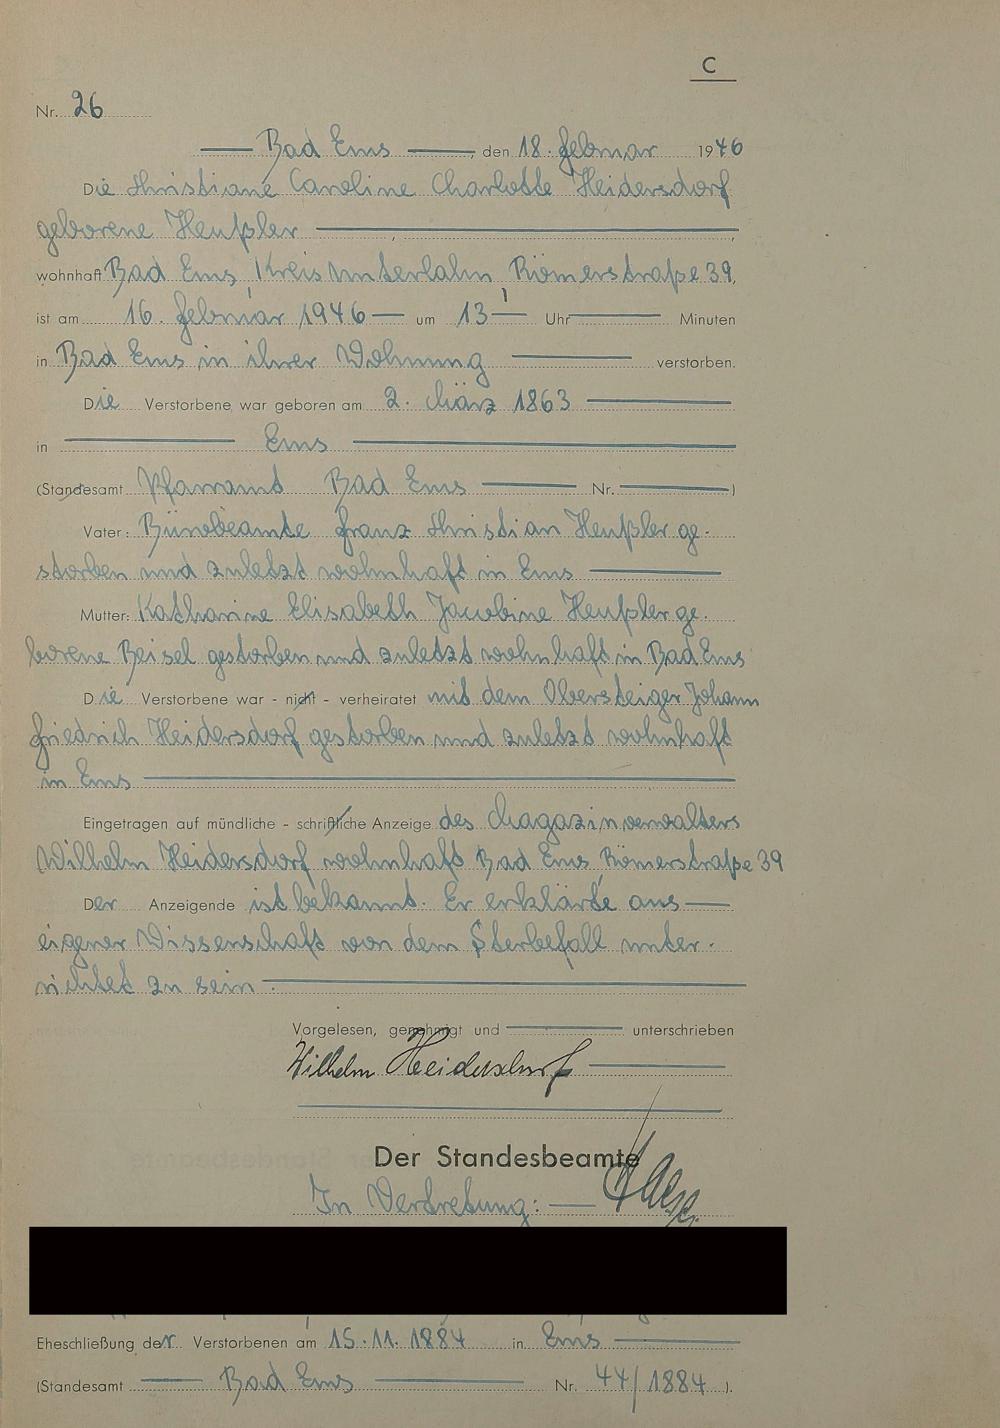 C
Nr. 26
Bad Ems, den 18. Februar 1946
Die Christiane Caroline Charlotte Heidersdorf
geborene Heußler
wohnhaft Bad Ems, Kreis Unterlahn Römerstraße 39,
ist am 16. Februar 1946 um 13 Uhr Minuten
in Bad Ems in ihrer Wohnung verstorben.
Die Verstorbene war geboren am 2. März 1863
in Ems
(Standesamt Pfarramt Bad Ems Nr. )
Vater: Franz Christian Heußler ge-
storben und zuletzt wohnhaft in Ems
Mutter: Katharine Elisabeth Jacobine Heußler ge-
borene Beisel gestorben und zuletzt wohnhaft in Bad Ems
Die Verstorbene war - nicht - verheiratet mit dem Obersteiger Johann
Friedrich Heidersdorf gestorben und zuletzt wohnhaft
in Ems
Eingetragen auf mündliche - schriftliche Anzeige des Magazinverwalters
Wilhelm Heidersdorf wohnhaft Bad Ems, Römerstraße 39
Der Anzeigende ist bekannt. Er erklärte aus
eigener Wissenschaft von dem Sterbefall unter-
richtet zu sein.
Vorgelesen, genehmigt und unterschrieben
Wilhelm Heidersdorf
Der Standesbeamte
In Vertretung:
Eheschließung der Verstorbenen am 15.11.1884 in Ems
(Standesamt Bad Ems Nr. 44/1884 ).